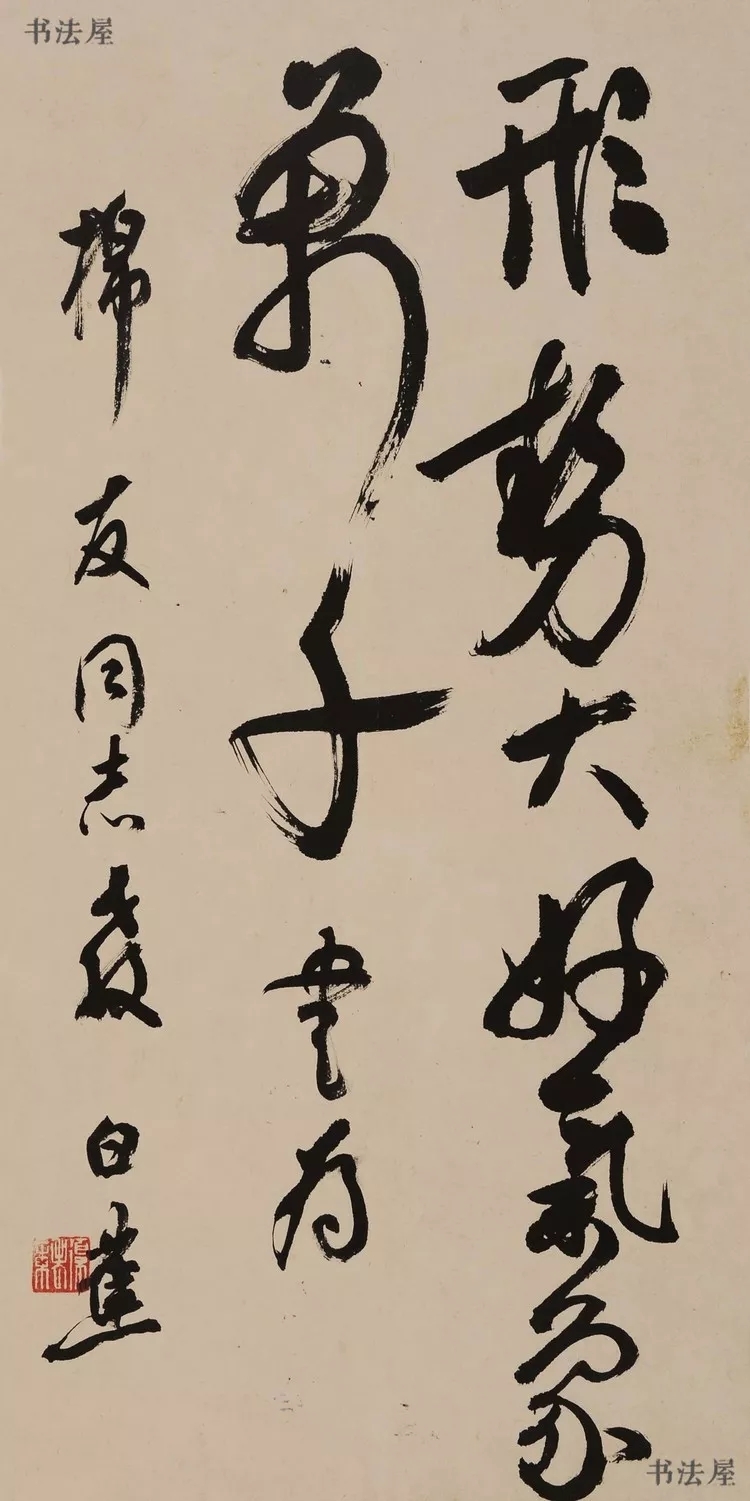 书法屋
形勢大好氣象
萬千書為
棉友同志教 白蕉
书法屋